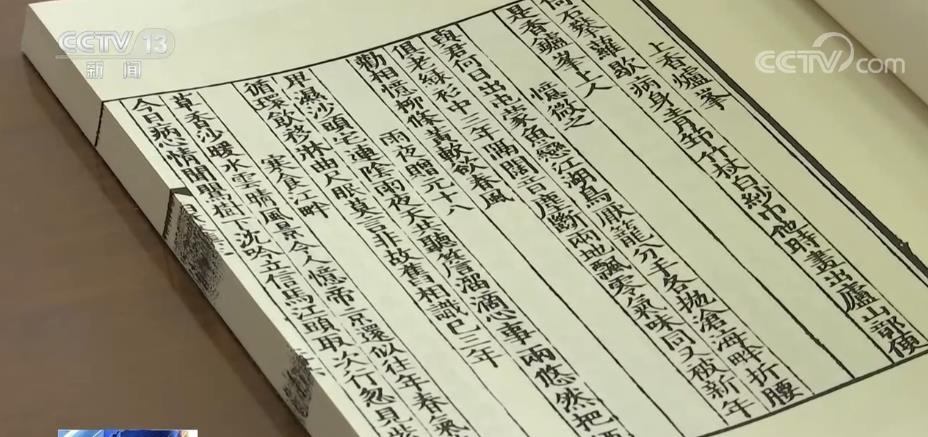 CCTV 13
新闻
CCTV com
上香爐峯
石攀蘿歇病身青筇竹杖白紗巾他時畫出廬山鄣便
是香鑪峯上人
憶微之
與君何日出屯蒙魚戀江湖鳥厭籠分手各拋滄海畔折腰
俱老綠衫中三年隔闊音塵斷兩地飄零氣味同又被新年
勸相憶柳條黃軟欲春風
雨夜贈元十八
卑濕沙頭宅連陰雨夜天共聽簷溜滴心事兩悠然把
循環飲移牀曲尺眠莫言非故舊相識已三年
寒食江畔
草香沙暖水雲晴風景令人憶帝京還似往年春氣
今日病心情聞鶯樹下沈吟立信馬江頭取次行忽見